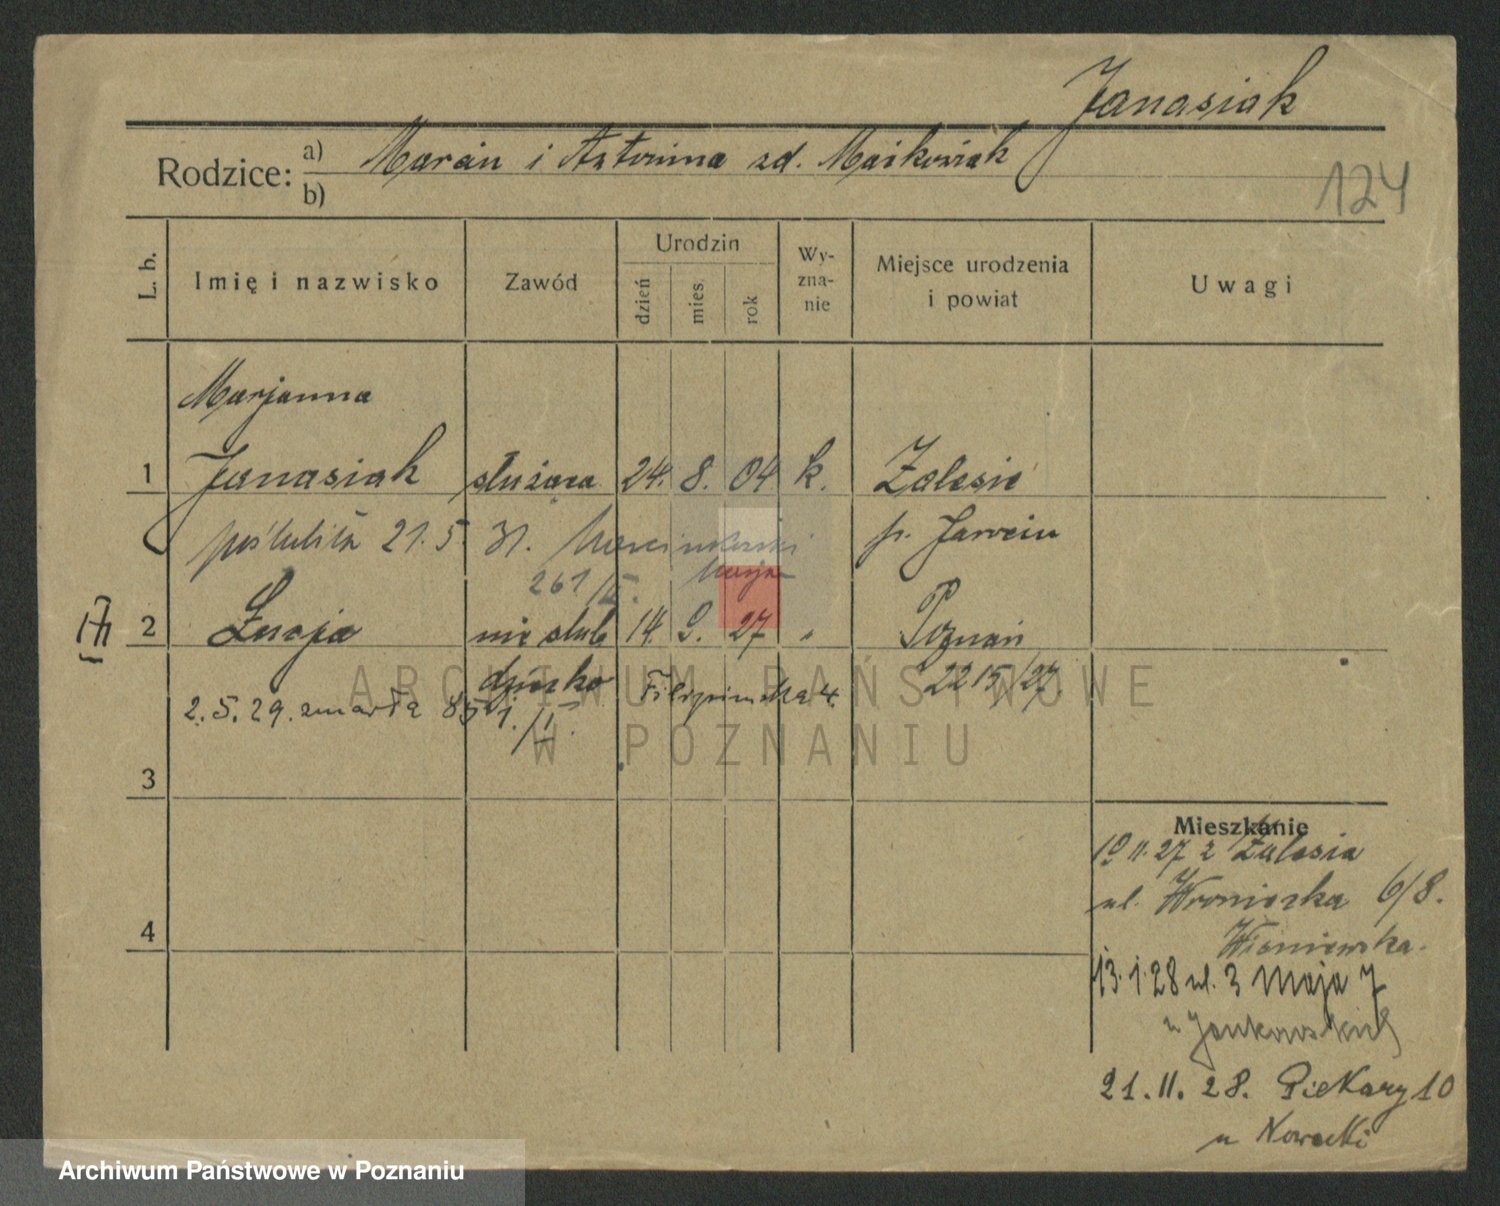 Janasiak
Rodzice: a) Marcin i Antonina zd. Maćkowiak
b)
124
L. b.
Imię i nazwisko
Zawód
Urodzin
dzień
mies.
rok
Wy-
zna-
nie
Miejsce urodzenia
i powiat
Uwagi
Marjanna
1 Janasiak służąca 24. 8. 04 k. Zalesie
poślubiła 21.5. 31. Marcinkowski p. Jarocin
261/II. Marjan
2 Łucja nieślub 14. 9. 27 " Poznań
dziecko 2215/27
2.5.29. zmarła 851./II. Filipińska 4.
3
4
Mieszkanie
10 11. 27 z Zalesia
ul. Wroniecka 6/8.
Wiśniewska.
13. 1. 28 ul. 3 Maja 7
u Jankowskich
21. 11. 28. Piekary 10
u Nowacki
ARCHIWUM PAŃSTWOWE
W POZNANIU
Archiwum Państwowe w Poznaniu